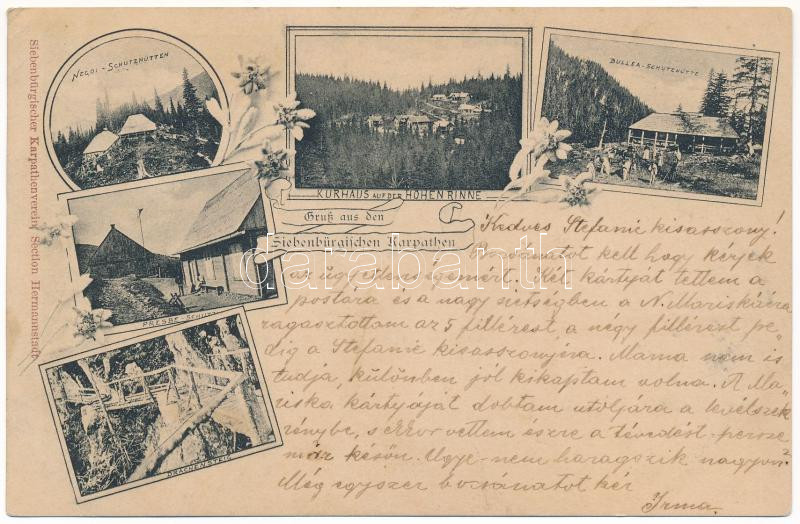 Siebenbürgischer Karpathenverein, Section Hermannstadt
NEGOI - SCHUTZHÜTTEN
KURHAUS AUF DER HOHEN RINNE
BULLEA - SCHUTZHÜTTE
PRESBE - SCHUTZ
DRACHENSTEIG
Gruß aus den
Siebenbürgischen Karpathen
darabanth
Kedves Stefanie kisasszony!
Bocsánatot kell hogy kérjek
az ügyetlenségemért. Két kártyját tettem a
postára és a nagy sietségben a N. Mariskáéra
ragasztottam az 5 fillérest, a négy fillérest pe„
dig a Stefanie kisasszonyéra. Mama nem is
tudja, különben jól kikaptam volna. A Ma„
riska kártyáját dobtam utoljára a levélszek„
rénybe, s ekkor vettem észre a tévedést persze
már későn. Ugye nem haragszik nagyon?
Még egyszer bocsánatot kér
Irma.